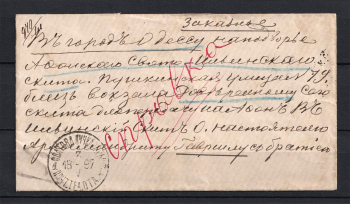 Заказное
Въ городъ Одессу на подворье
Афонскаго Свято Ильинскаго
скита. Пушкинская улица № 79.
близъ вокзала. Довѣренному Сою
скита для передачи на Афонъ Въ
Ильинскій скитъ О. настоятелю
Архимандриту Гавріилу съ братіею
справка